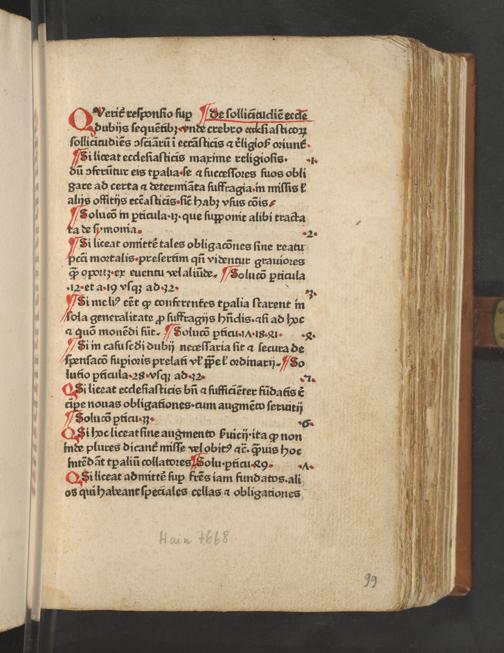 QUerit͛ responsio sup̱ ¶ de sollicitudīe eccl̄e
dubijs sequētibꝫ vnde crebro eccl̄siasticoꝝ
sollicitudīes ↄsciāꝝ i eccāsticis ⁊ r̄ligiosꝭ oriunt͛
¶ Si liceat ecclesiasticis maxime religiosis · ·1·
dū ↄferūtur eis tꝑalia se ⁊ successores suos obli
gare ad certa ⁊ determīata suffragia in missis ł
alijs officijs eccāsticis sic̄ habꝫ vsus cōis
¶ Solucō in ꝑticula ·13· que supponit alibi tracta
ta de symonia· ·2·
¶ Si liceat omitte͛ tales obligacōnes sine reatu
pcc̄i mortalis presertim qn̄ videntur grauiores
ꝙ̄ oportꝫ ex euentu vel aliūde· ¶ Solucō ꝑticula
·12· et a ·19· vsqꝫ ad ·32· ·3·
¶ Si meliꝰ eēt ꝙ conferentes tꝑalia starent in
sola generalitate ꝓ suffragijs hn̄dis an̄ ad hoc
⁊ quō monēdi sūt· ¶ Solucō ꝑticu· 17· 18· 21· ·4·
¶ Si in casu sedi dubij necessaria sit ⁊ secura de
spensacō suꝑioris prelati vł ꝓꝓe ł ordinarij ¶ So
lutio ꝑticula ·28· vsqꝫ ad ·32· ·5·
Si liceat ecclesiasticis bn̄ ⁊ sufficiēter fūdatis r̄
cipe nouas obligationes cum augmēto seruitij
¶ Solucō ꝑticu· 33· ·6·
Si hoc liceat sine augmento s̄uicij ita ꝙ non
inde plures dicant͛ misse vel obitꝰ ⁊c̄ ꝙ̄uis hoc
intēdāt tꝑaliū collatores ¶ Solu· ꝑticu· 29· ·7·
Si liceat admitte͛ sup̱ frēs iam fundatos ali
os qui habeant speciales cellas ⁊ obligationes
Hain 7668
99